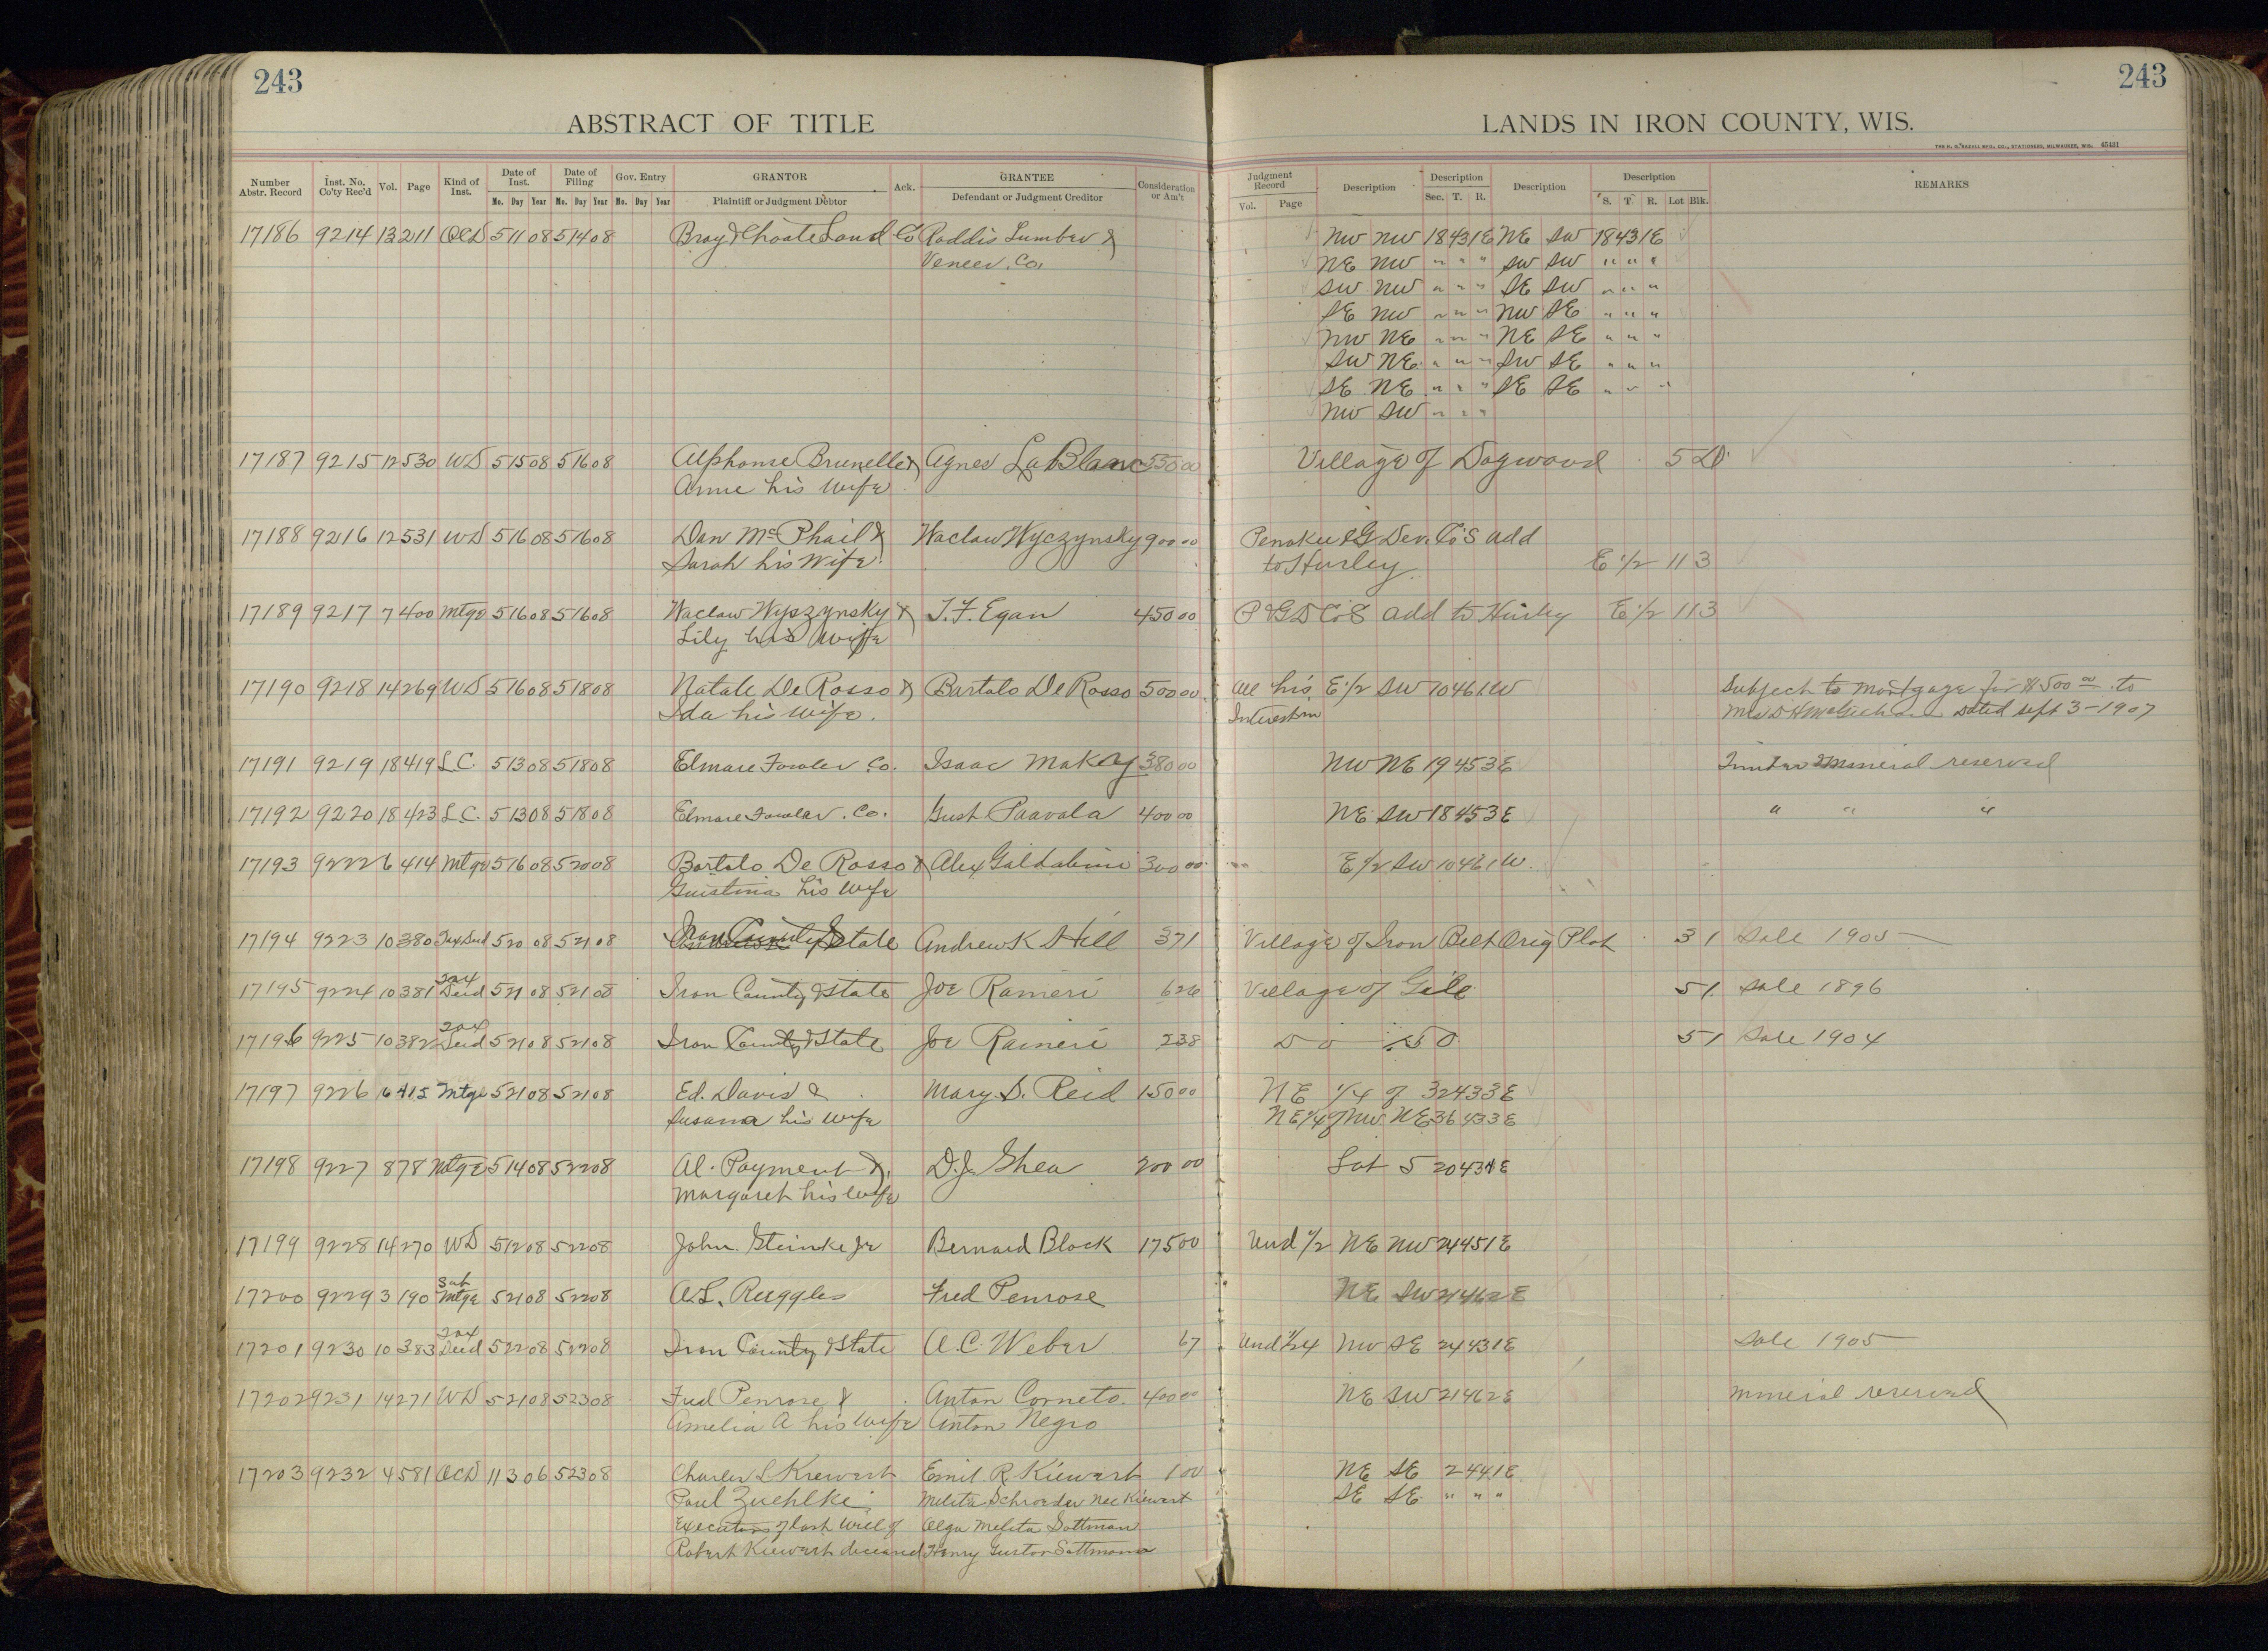 243
243
ABSTRACT OF TITLE
LANDS IN IRON COUNTY, WIS.
Number Abstr. Record Inst. No. Co'ty Rec'd Vol. Page Kind of Inst. Date of Inst. Mo. Day Year Date of Filing Mo. Day Year Gov. Entry Mo. Day Year GRANTOR Plaintiff or Judgment Debtor Ack. GRANTEE Defendant or Judgment Creditor Consideration or Am't Judgment Record Vol. Page Description Description Sec. T. R. Description Description S. T. R. Lot Blk. REMARKS
17186 9214 13 211 QCD 5 11 08 5 14 08 Bray & Choate Land Co Roddis Lumber & NW NW 18 43 1E NE SW 18 43 1E
Veneer Co. NE NW " " " SW SW " " "
SW NW " " " SE SW " " "
SE NW " " " NW SE " " "
NW NE " " " NE SE " " "
SW NE " " " SW SE " " "
SE NE " " " SE SE " " "
NW SW " " "
17187 9215 12 530 WD 5 15 08 5 16 08 Alphonse Brunelle & Agnes La Blanc 550 00 Village of Dogwood 5 D
Anne his wife
17188 9216 12 531 WD 5 16 08 5 16 08 Dan McPhail & Waclaw Wyczynsky 900 00 Penokee & G Dev. Co's add
Sarah his Wife to Hurley E 1/2 11 3
17189 9217 7 400 Mtge 5 16 08 5 16 08 Waclaw Wyszynsky & T. F. Egan 450 00 P & G D Co's add to Hurley E 1/2 11 3
Lily his wife
17190 9218 14 269 WD 5 16 08 5 18 08 Natale De Rosso & Bartolo De Rosso 500 00 All his E 1/2 SW 10 46 1W Subject to Mortgage for $500 00 to
Ida his wife. Interest in Dated Sept 3-1907
17191 9219 18 419 L.C. 5 13 08 5 18 08 Elmore Fowler Co. Isaac Makey 380 00 NW NE 19 45 3E Timber & Mineral reserved
17192 9220 18 423 L.C. 5 13 08 5 18 08 Elmore Fowler Co. Gust Paavola 400 00 NE SW 18 45 3E " " "
17193 9222 6 414 Mtge 5 16 08 5 20 08 Bortolo De Rosso & Alex Galdabini 300 00 E 1/2 SW 10 46 1W
Guistina his wife
17194 9223 10 380 Tax Deed 5 20 08 5 21 08 Iron County & State Andrew K Hill 3 71 Village of Iron Belt Orig Plat 3 1 Sale 1905
17195 9224 10 381 Tax Deed 5 21 08 5 21 08 Iron County & State Joe Raineri 6 26 Village of Gile 5 1 Sale 1896
17196 9225 10 382 Tax Deed 5 21 08 5 21 08 Iron County & State Joe Raineri 2 38 Do Do 5 1 Sale 1904
17197 9226 6 415 Mtge 5 21 08 5 21 08 Ed. Davis & Mary S. Reid 150 00 NE 1/4 of 32 43 3E
Susanna his wife NE 1/4 of NW NE 36 43 3E
17198 9227 8 78 Mtge 5 14 08 5 22 08 Al. Payment & D. J. Shea 200 00 Lot 5 20 43 4E
Margaret his wife
17199 9228 14 270 WD 5 12 08 5 22 08 John Steinke Jr Bernard Block 175 00 Und 1/2 NE NW 24 45 1E
17200 9229 3 190 Sat Mtge 5 21 08 5 22 08 A. L. Ruggles Fred Penrose NE SW 21 46 2E
17201 9230 10 383 Tax Deed 5 22 08 5 22 08 Iron County & State A. C. Weber 67 Und 1/24 NW SE 24 43 1E Sale 1905
17202 9231 14 271 WD 5 21 08 5 23 08 Fred Penrose & Anton Corneto 400 00 NE SW 21 46 2E Mineral reserved
Amelia A his wife Anton Negro
17203 9232 4 581 QCD 1 13 06 5 23 08 Charles L Kiewert Emil R. Kiewert 1 00 NE SE 2 44 1E
Paul Zuehlke Melita Schroeder nee Kiewert SE SE " " "
Executors of last Will of Olga Melita Sattman
Robert Kiewert deceased Henry Gustav Sattmann